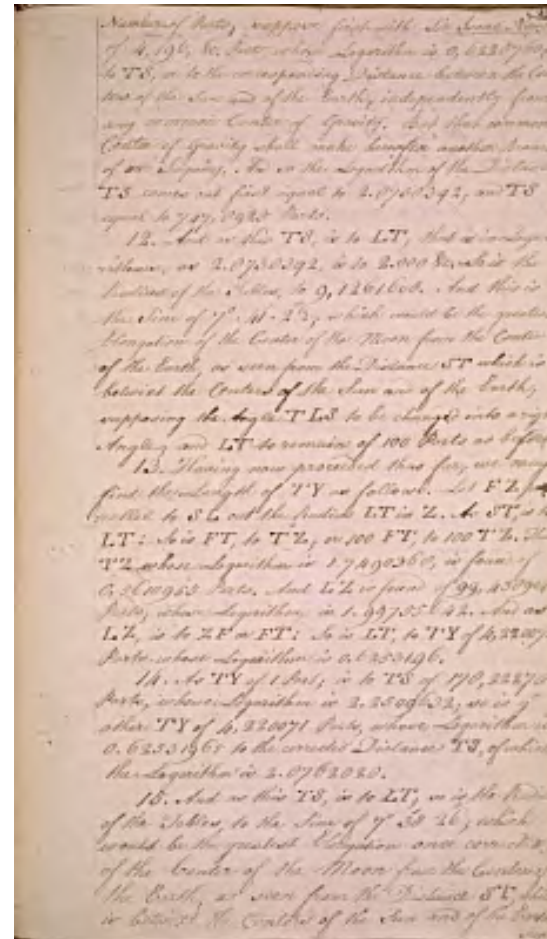 Number of Parts, suppose first with Sir Isaac
of 4,196, &c. Parts whose Logarithm is 0,6228760,
to TS, or to the corresponding Distance between the Cen
ters of the Sun and of the Earth, independently from
any common Center of Gravity. But that common
Center of Gravity shall make hereafter another Branch
of our Inquiry. And so the Logarithm of the Distance
TS comes out first equal to 2.0730392, and TS
equal to Parts.
12. And as this TS, is to LT, that is in Loga
rithms, as 2.0730392, is to 2.000 &c. so is the
Radius of the Tables, to 9,1261608. And this is
the Sine of 7°. 41. 23, which would be the greatest
Elongation of the Center of the Moon from the Center
of the Earth, as seen from the Distance ST which is
betwixt the Centers of the Sun and of the Earth,
supposing the Angle TLS to be changed into a right
Angle, and LT to remain of 100 Parts as before.
13. Having now proceeded thus far, we may
find the Length of TY as follows. Let FZ
to SL cut the Radius LT in Z. As ST, is to
LT: So is FT, to TZ, or 100 FT, to 100 TZ.
TZ whose Logarithm is 1.7490360, is found of
0,5610965 Parts. And LZ is found of 99,43890
Parts, whose Logarithm is 1.9975564. And as
LZ, is to ZF or FT: So is LT, to TY of 4,22007
Parts whose Logarithm is 0.6253196.
14. As TY of 1 Part, is to TS of 178,22270
Parts, whose Logarithm is 2.2509632; so is ye
other TY of 4,220071 Parts, whose Logarithm is
0.6253196 to the corrected Distance TS, of which
the Logarithm is 2.0762020.
15. And as this TS, is to LT, so is the Radius
of the Tables, to the Sine of 7° 38 26, which
would be the greatest Elongation once corrected,
of the Center of the Moon from the Center of
the Earth, as seen from the Distance ST, which
is betwixt the Centers of the Sun and of the Earth